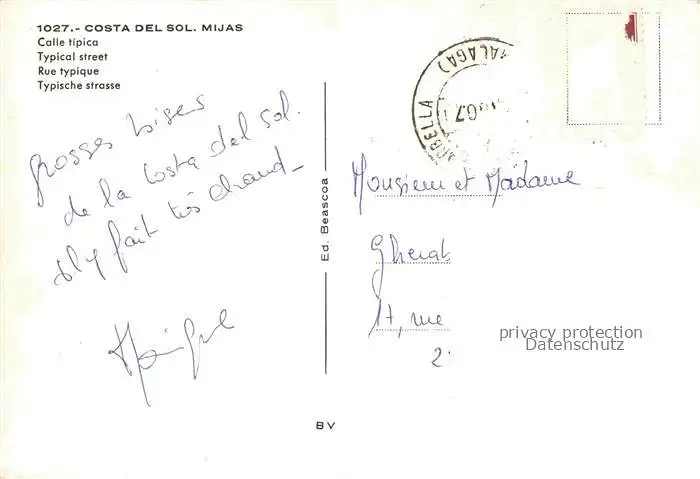 1027.- COSTA DEL SOL. MIJAS
Calle típica
Typical street
Rue typique
Typische strasse
grosses bises
de la Costa del sol.
Il y fait très chaud_
Ed. Beascoa
BV
MARBELLA (MALAGA)
Monsieur et Madame
17, rue
2
privacy protection
Datenschutz